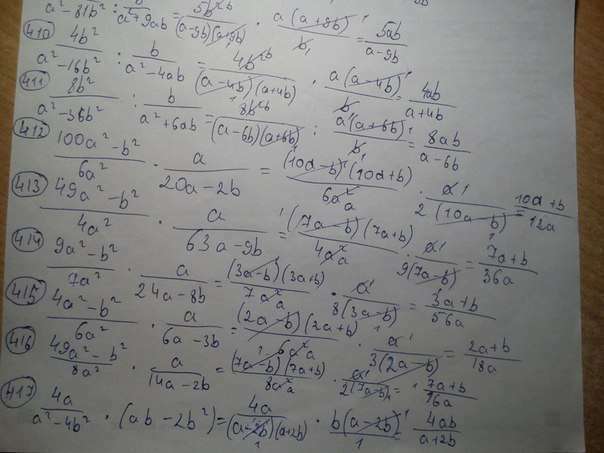 a² - 81b² : b / a² + 9ab = 5b² / (a-9b)(a+9b) · a(a+9b) / b = 5ab / a-9b
410) 4b² / a² - 16b² : b / a² - 4ab = 4b² / (a-4b)(a+4b) · a(a-4b) / b = 4ab / a+4b
411) 8b² / a² - 36b² : b / a² + 6ab = 8b² / (a-6b)(a+6b) : a(a+6b) / b = 8ab / a-6b
412) 100a² - b² / 6a² · a / 20a - 2b = (10a-b)(10a+b) / 6a² · a / 2(10a-b) = 10a+b / 12a
413) 49a² - b² / 4a² · a / 63a - 9b = (7a-b)(7a+b) / 4a² · a / 9(7a-b) = 7a+b / 36a
414) 9a² - b² / 7a² · a / 24a - 8b = (3a-b)(3a+b) / 7a² · a / 8(3a-b) = 3a+b / 56a
415) 4a² - b² / 6a² · a / 6a - 3b = (2a-b)(2a+b) / 6a² · a / 3(2a-b) = 2a+b / 18a
416) 49a² - b² / 8a² · a / 14a - 2b = (7a-b)(7a+b) / 8a² · a / 2(7a-b) = 7a+b / 16a
417) 4a / a² - 4b² · (ab - 2b²) = 4a / (a-2b)(a+2b) · b(a-2b) / 1 = 4ab / a+2b